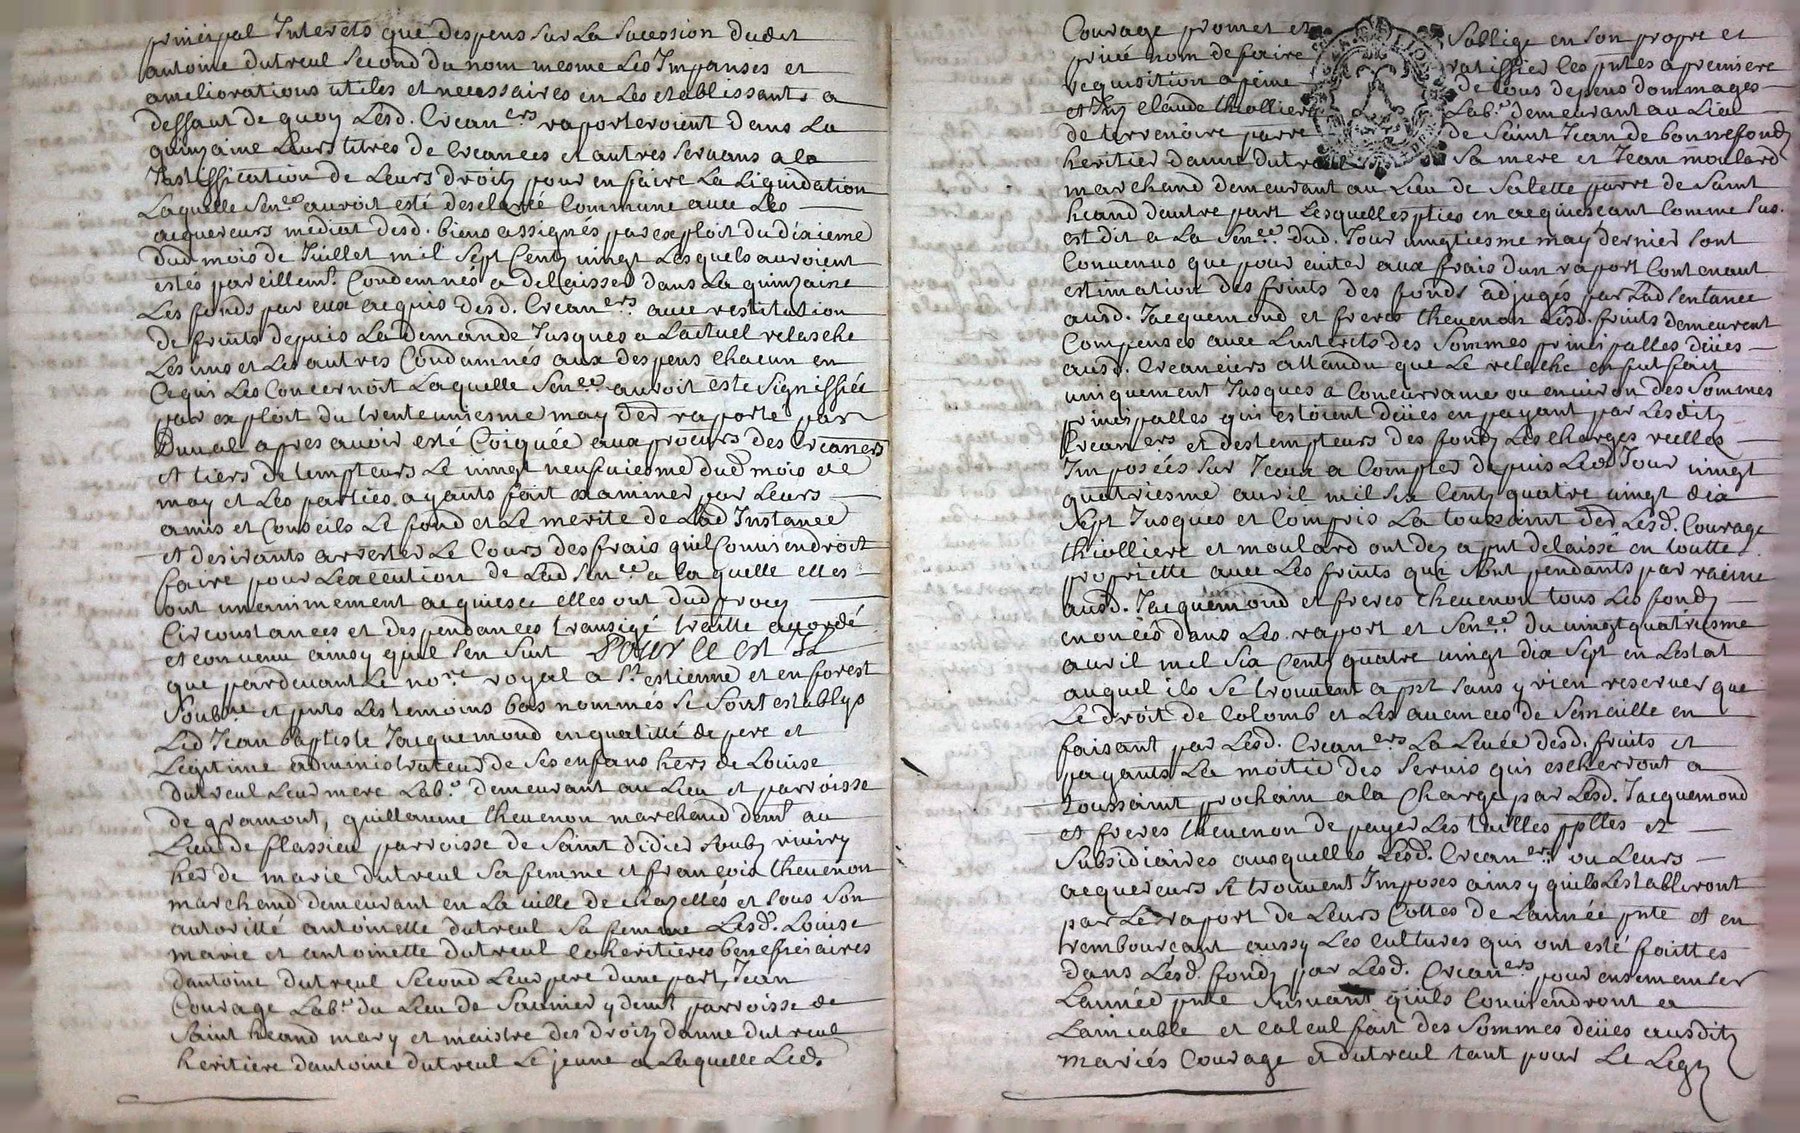 principal Interets que despens sur La Sucession dudit
antoine dutreul second du nom mesme Les Impanses et
ameliorations utiles et necessaires en Les etablissants a
deffaut de quoy Lesd. Crean.ers raporteroient dans La
quinzaine Leurs titres de Creances et autres servans a la
Justiffication de Leurs droits pour en faire La Liquidation
Laquelle Sen.ce auroit esté desclarée Commune avec Les
acquereurs mediat desd. biens assignés par exploit du dixieme
dud mois de Juillet mil Sept Cents vingt Lesquels auroient
estés pareillem.t Condemnés a delaisser dans La quinzaine
Les fonds par eux acquis desd. Crean.ers avec restitution
de fruits depuis La demande Jusques a Lactuel relasche
Les uns et Les autres Condamnés aux despens chacun en
Ce qui Les Concernoit Laquelle Sen.ce auroit esté Signiffiée
par exploit du trente uniesme may der raporté par
Duval apres avoir esté Coiquée aux procurs des Creaners
et tiers detempteurs Le vingt neufvieme dud mois de
may et Les parties ayants fait examiner par Leurs
amis et Conseils Le fond et Le merite de Lad Instance
et desirants arrester Le Cours des frais quil Conviendroit
faire pour Lexecution de Lad Sen.ce a laquelle elles
ont unanimement acquiescé elles ont dud procez
Circonstances et despendances transigé traitté accordé
et convenu ainsy quil Sen Suit Pour ce est Il
que pardevant Le no.re royal a S.t estienne et en forest
Soub.ne et pnts Les temoins bas nommés Se Sont establys
Led Jean baptiste Jacquemond en qualitté de pere et
Legitime administrateur de Ses enfans hers de Louise
dutreul Leur mere Lab.r demeurant au Lieu et parroisse
de gramont, guillaume thevenon marchand dem.t au
Lieu de flassieu parroisse de Saint didier Soubz riviry
her de marie dutreul Sa femme et françois thevenon
marchand demeurant en La ville de chazelles et Sous Son
autoritté antoinette dutreul Sa femme Lesd. Louise
marie et antoinette dutreul coheritieres beneficiaires
dantoine dutreul Second Leur pere dune part, Jean
Courage Lab.r du Lieu de Saunier y dem.t parroisse de
Saint heand mary et maistre des droits danne dutreul
heritiere dantoine dutreul Le jeune a Laquelle Led.
Courage promet et Soblige en Son propre et
privé nom de faire ratiffier Les pntes a premiere
requisition a peine de tous depens dommages
et Claude thiolliere Lab.r demeurant au Lieu
de terrenoire parre de Saint Jean de bonnefond
heritier danne dutreul Sa mere et Jean moulard
marchand demeurant au Lieu de Salette parre de Saint
heand dautre part Lesquelles pties en acquiescant Comme Sus
est dit a La Sen.ce dud. Jour vingtiesme may dernier Sont
Convenus que pour eviter aux frais dun raport Contenant
estimation des fruits des fonds adjugés par Lad Sentance
ausd. Jacquemond et freres thevenon Lesd. fruits demeurent
Compensés avec Linterets des Sommes principalles deües
ausd. Creanciers attandu que Le relache en fut fait
uniquement Jusques a Concurrance ou environ des Sommes
principalles qui estoient deües en payant par Lesdits
Crean.ers et destempteurs des fonds Les charges reelles
Imposées Sur Iceux a Compter depuis Led Jour vingt
quatriesme avril mil Six Cents quatre vingt dix
Sept Jusques et Compris La toussaint der Lesd. Courage
thiolliere et moulard ont dez a pnt delaissé en toutte
proprietté avec Les fruits que Sont pendants par racine
ausd. Jacquemond et freres thevenon tous Les fonds
enoncés dans Les raport et Sen.ce du vingt quatriesme
avril mil Six Cents quatre vingt dix Sept en Lestat
auquel ils Se trouvent a pnt Sans y rien reserver que
Le droit de Colomb et Les avances de Semaille en
faisant par Lesd. Crean.ers La Levée desd. fruits et
payants La moitié des Servis qui escherront a
toussaint prochain a la Charge par Lesd. Jacquemond
et freres thevenon de payer Les tailles pplles et
Subsidiaires ausquelles Lesd. Crean.ers ou Leurs
acquereurs Se trouvent Imposés ainsy quils Lestabliront
par Le raport de Leurs Cottes de Lannée pnte et en
rembourçant aussy Les cultures qui ont esté faittes
dans Lesd. fonds par Lesd. Crean.ers pour ensemencer
Lannée pnte Suivant quils Conviendront a
Lamiable et Calcul fait des Sommes deües ausdits
mariés Courage et dutreul tant pour Le Legz